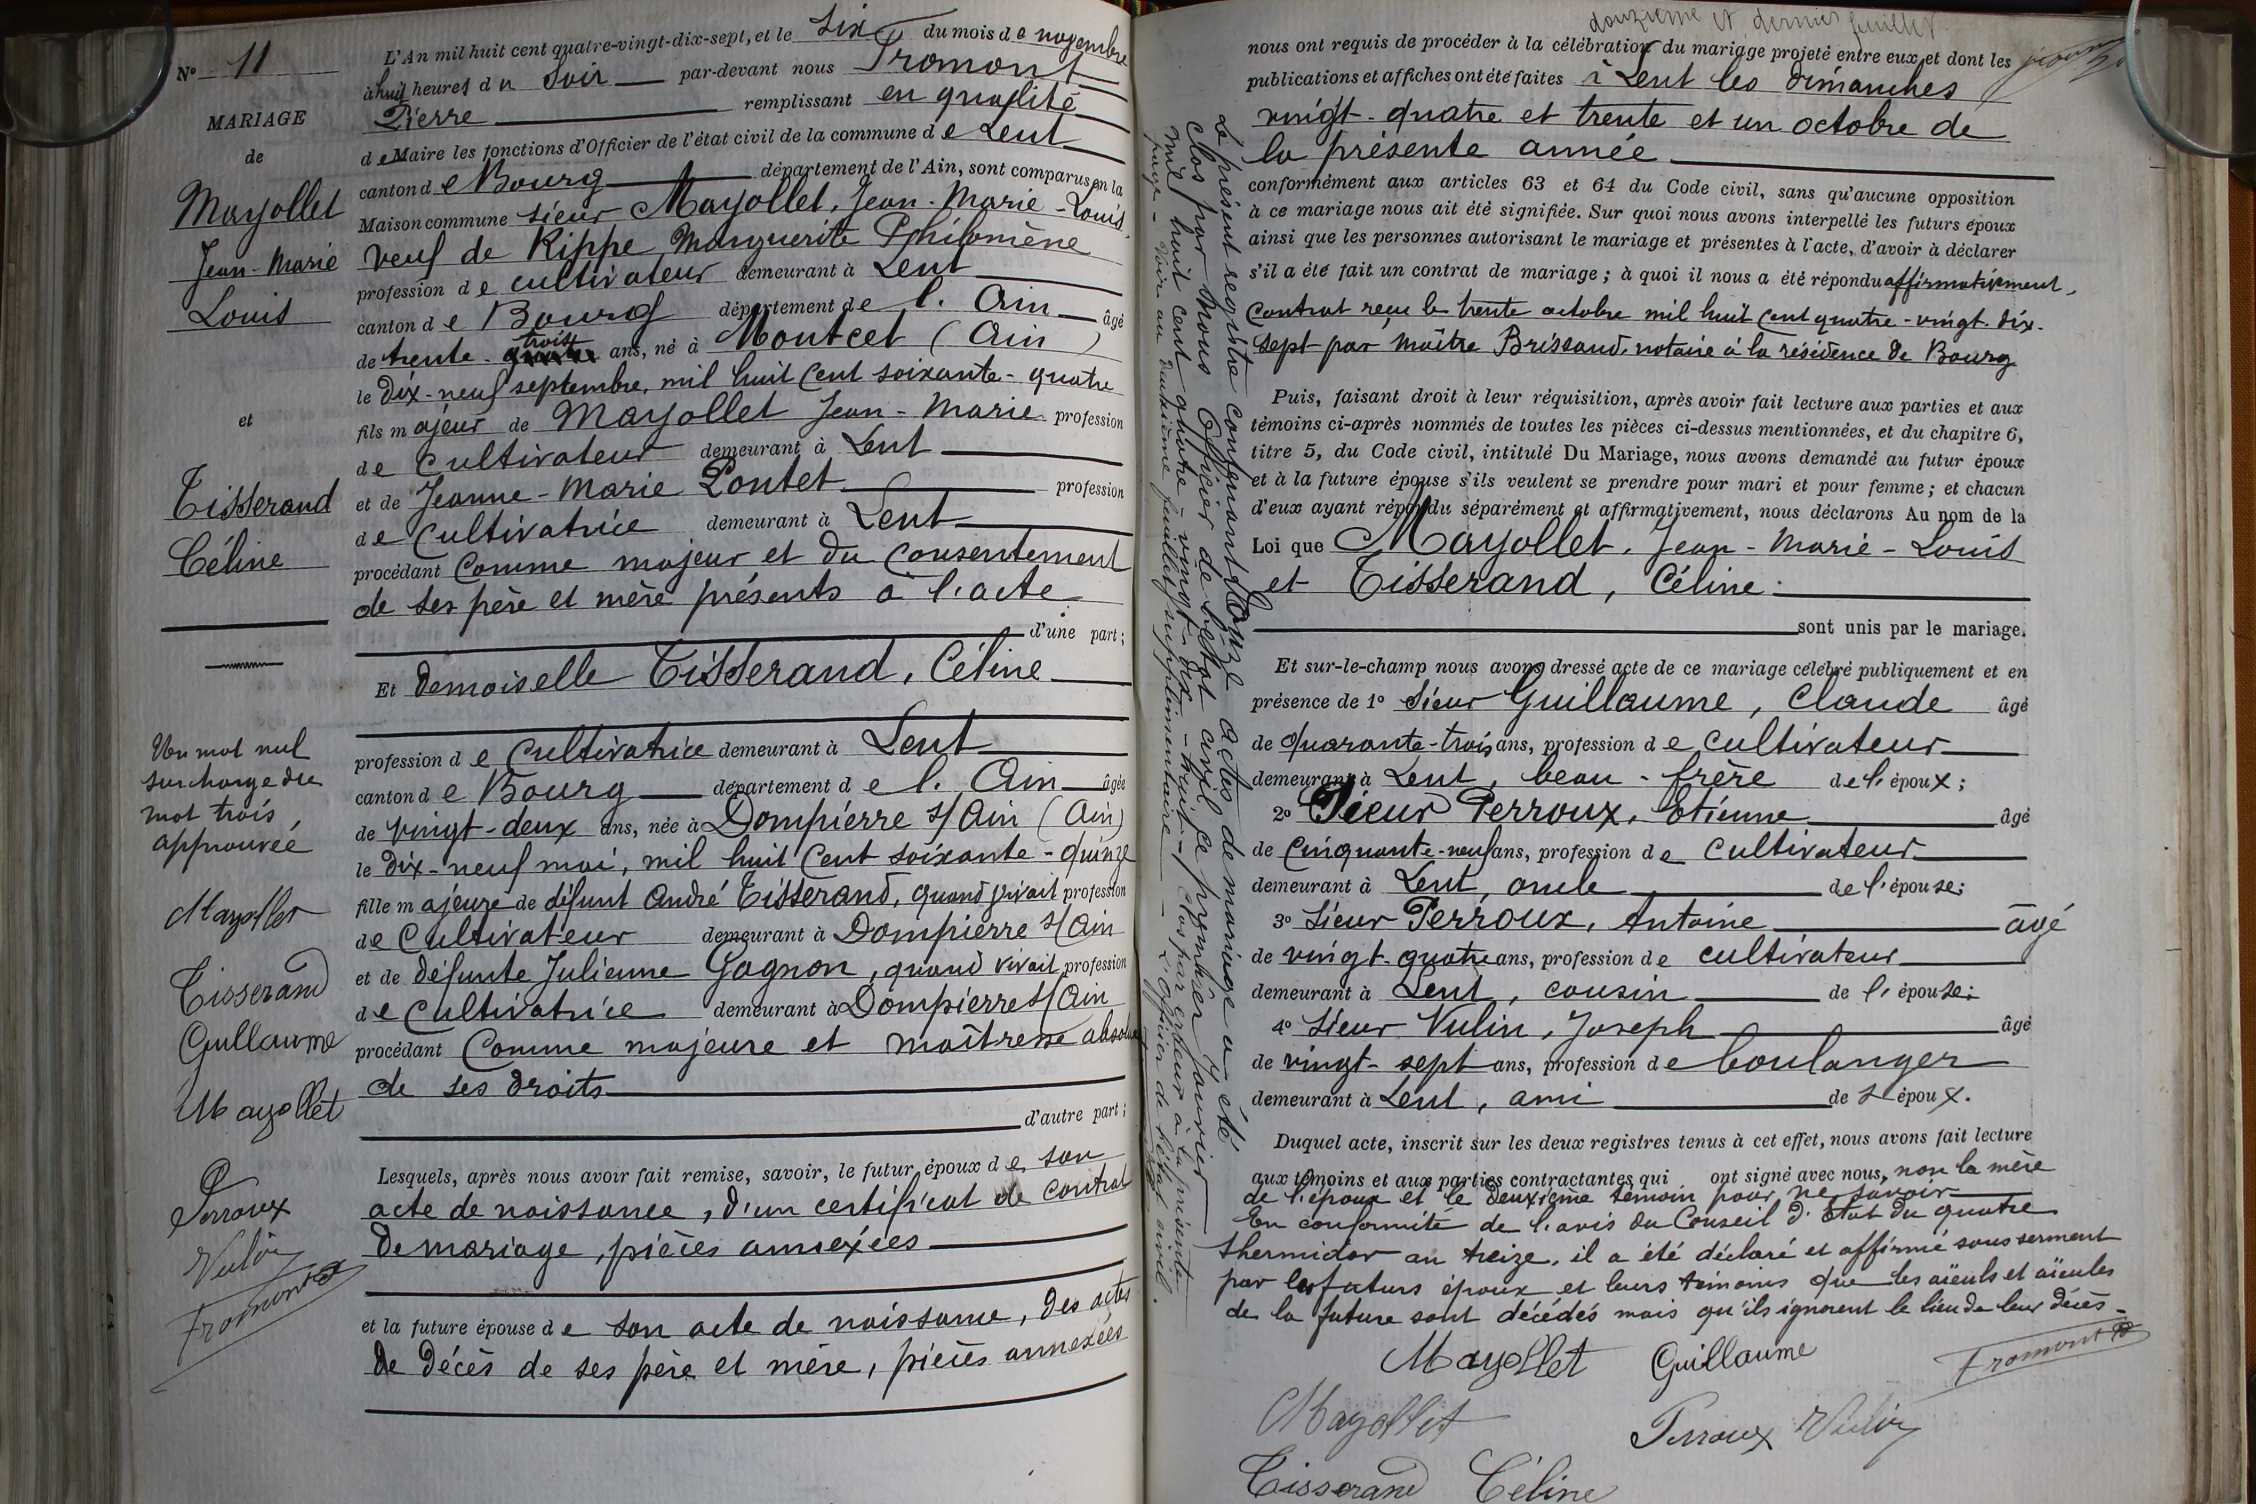 N° 11
MARIAGE
de
Mayollet
Jean-Marie
Louis
et
Tisserand
Céline
Un mot nul
surcharge du
mot trois
approuvée
Mayollet
Tisserand
Guillaume
Mayollet
Perroux
Vulin
Fromont
L'An mil huit cent quatre-vingt-dix-sept, et le six du mois de novembre
à huit heures du soir par-devant nous Fromont
Pierre remplissant en qualité
de Maire les fonctions d'Officier de l'état civil de la commune de Lent
canton de Bourg département de l'Ain, sont comparus en la
Maison commune sieur Mayollet, Jean-Marie-Louis
veuf de Rippe Marguerite Philomène
profession de cultivateur demeurant à Lent
canton de Bourg département de l'Ain âgé
de trente-trois ans, né à Montcet (Ain)
le dix-neuf septembre, mil huit cent soixante-quatre
fils majeur de Mayollet Jean-Marie profession
de cultivateur demeurant à Lent
et de Jeanne-Marie Pontet profession
de cultivatrice demeurant à Lent
procédant comme majeur et du consentement
de ses père et mère présents à l'acte
d'une part;
Et demoiselle Tisserand, Céline
profession de cultivatrice demeurant à Lent
canton de Bourg département de l'Ain âgée
de vingt-deux ans, née à Dompierre s/Ain (Ain)
le dix-neuf mai, mil huit cent soixante-quinze
fille majeure de défunt André Tisserand, quand vivait profession
de cultivateur demeurant à Dompierre s/Ain
et de défunte Julienne Gagnon, quand vivait profession
de cultivatrice demeurant à Dompierre s/Ain
procédant comme majeure et maîtresse absolue
de ses droits
d'autre part;
Lesquels, après nous avoir fait remise, savoir, le futur époux de son
acte de naissance, d'un certificat de contrat
de mariage, pièces annexées
et la future épouse de son acte de naissance, des actes
de décès de ses père et mère, pièces annexées
Le présent registre contenant onze actes de mariage a été
clos par nous Officier de l'état civil ce premier Janvier
mil huit cent quatre-vingt-dix-huit - Clos par erreur à la présente
page - Voir au deuxième feuillet supplémentaire - L'officier de l'état civil.
douzième et dernier feuillet
nous ont requis de procéder à la célébration du mariage projeté entre eux et dont les
publications et affiches ont été faites à Lent les dimanches
vingt-quatre et trente et un octobre de
la présente année
conformément aux articles 63 et 64 du Code civil, sans qu'aucune opposition
à ce mariage nous ait été signifiée. Sur quoi nous avons interpellé les futurs époux
ainsi que les personnes autorisant le mariage et présentes à l'acte, d'avoir à déclarer
s'il a été fait un contrat de mariage; à quoi il nous a été répondu affirmativement,
contrat reçu le trente octobre mil huit cent quatre-vingt-dix-
sept par Maître Brissaud, notaire à la résidence de Bourg
Puis, faisant droit à leur réquisition, après avoir fait lecture aux parties et aux
témoins ci-après nommés de toutes les pièces ci-dessus mentionnées, et du chapitre 6,
titre 5, du Code civil, intitulé Du Mariage, nous avons demandé au futur époux
et à la future épouse s'ils veulent se prendre pour mari et pour femme; et chacun
d'eux ayant répondu séparément et affirmativement, nous déclarons Au nom de la
Loi que Mayollet, Jean-Marie-Louis
et Tisserand, Céline
sont unis par le mariage.
Et sur-le-champ nous avons dressé acte de ce mariage célébré publiquement et en
présence de 1° sieur Guillaume, Claude âgé
de quarante-trois ans, profession de cultivateur
demeurant à Lent, beau-frère de l'époux;
2° Sieur Perroux, Etienne âgé
de cinquante-neuf ans, profession de cultivateur
demeurant à Lent, oncle de l'épouse;
3° Sieur Perroux, Antoine âgé
de vingt-quatre ans, profession de cultivateur
demeurant à Lent, cousin de l'épouse;
4° Sieur Vulin, Joseph âgé
de vingt-sept ans, profession de boulanger
demeurant à Lent, ami de l'époux.
Duquel acte, inscrit sur les deux registres tenus à cet effet, nous avons fait lecture
aux témoins et aux parties contractantes qui ont signé avec nous, non la mère
de l'époux et le deuxième témoin pour ne savoir
En conformité de l'avis du Conseil d'Etat du quatre
thermidor an treize, il a été déclaré et affirmé sous serment
par les futurs époux et leurs témoins que les aïeuls et aïeules
de la future sont décédés mais qu'ils ignorent le lieu de leur décès-
Mayollet Guillaume Fromont
Mayollet Perroux Vulin
Tisserand Céline